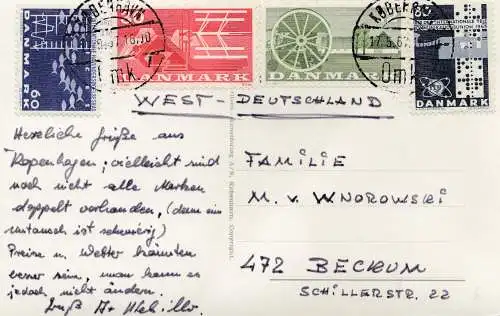 KØBENHAVN
KØBENHAVN
17.5.67
Omk
Omk
DANMARK
60
DANMARK
DANMARK
80
DANMARK
WEST-DEUTSCHLAND
Herzliche Grüße aus
Kopenhagen; vielleicht sind
noch nicht alle Marken
doppelt vorhanden, (denn ein
umtausch ist schwierig)
Preise u. Wetter könnten
besser sein, man kann es
jedoch nicht ändern.
Gruß
FAMILIE
M. V. WNOROWSKI
472 BECKUM
SCHILLERSTR. 22